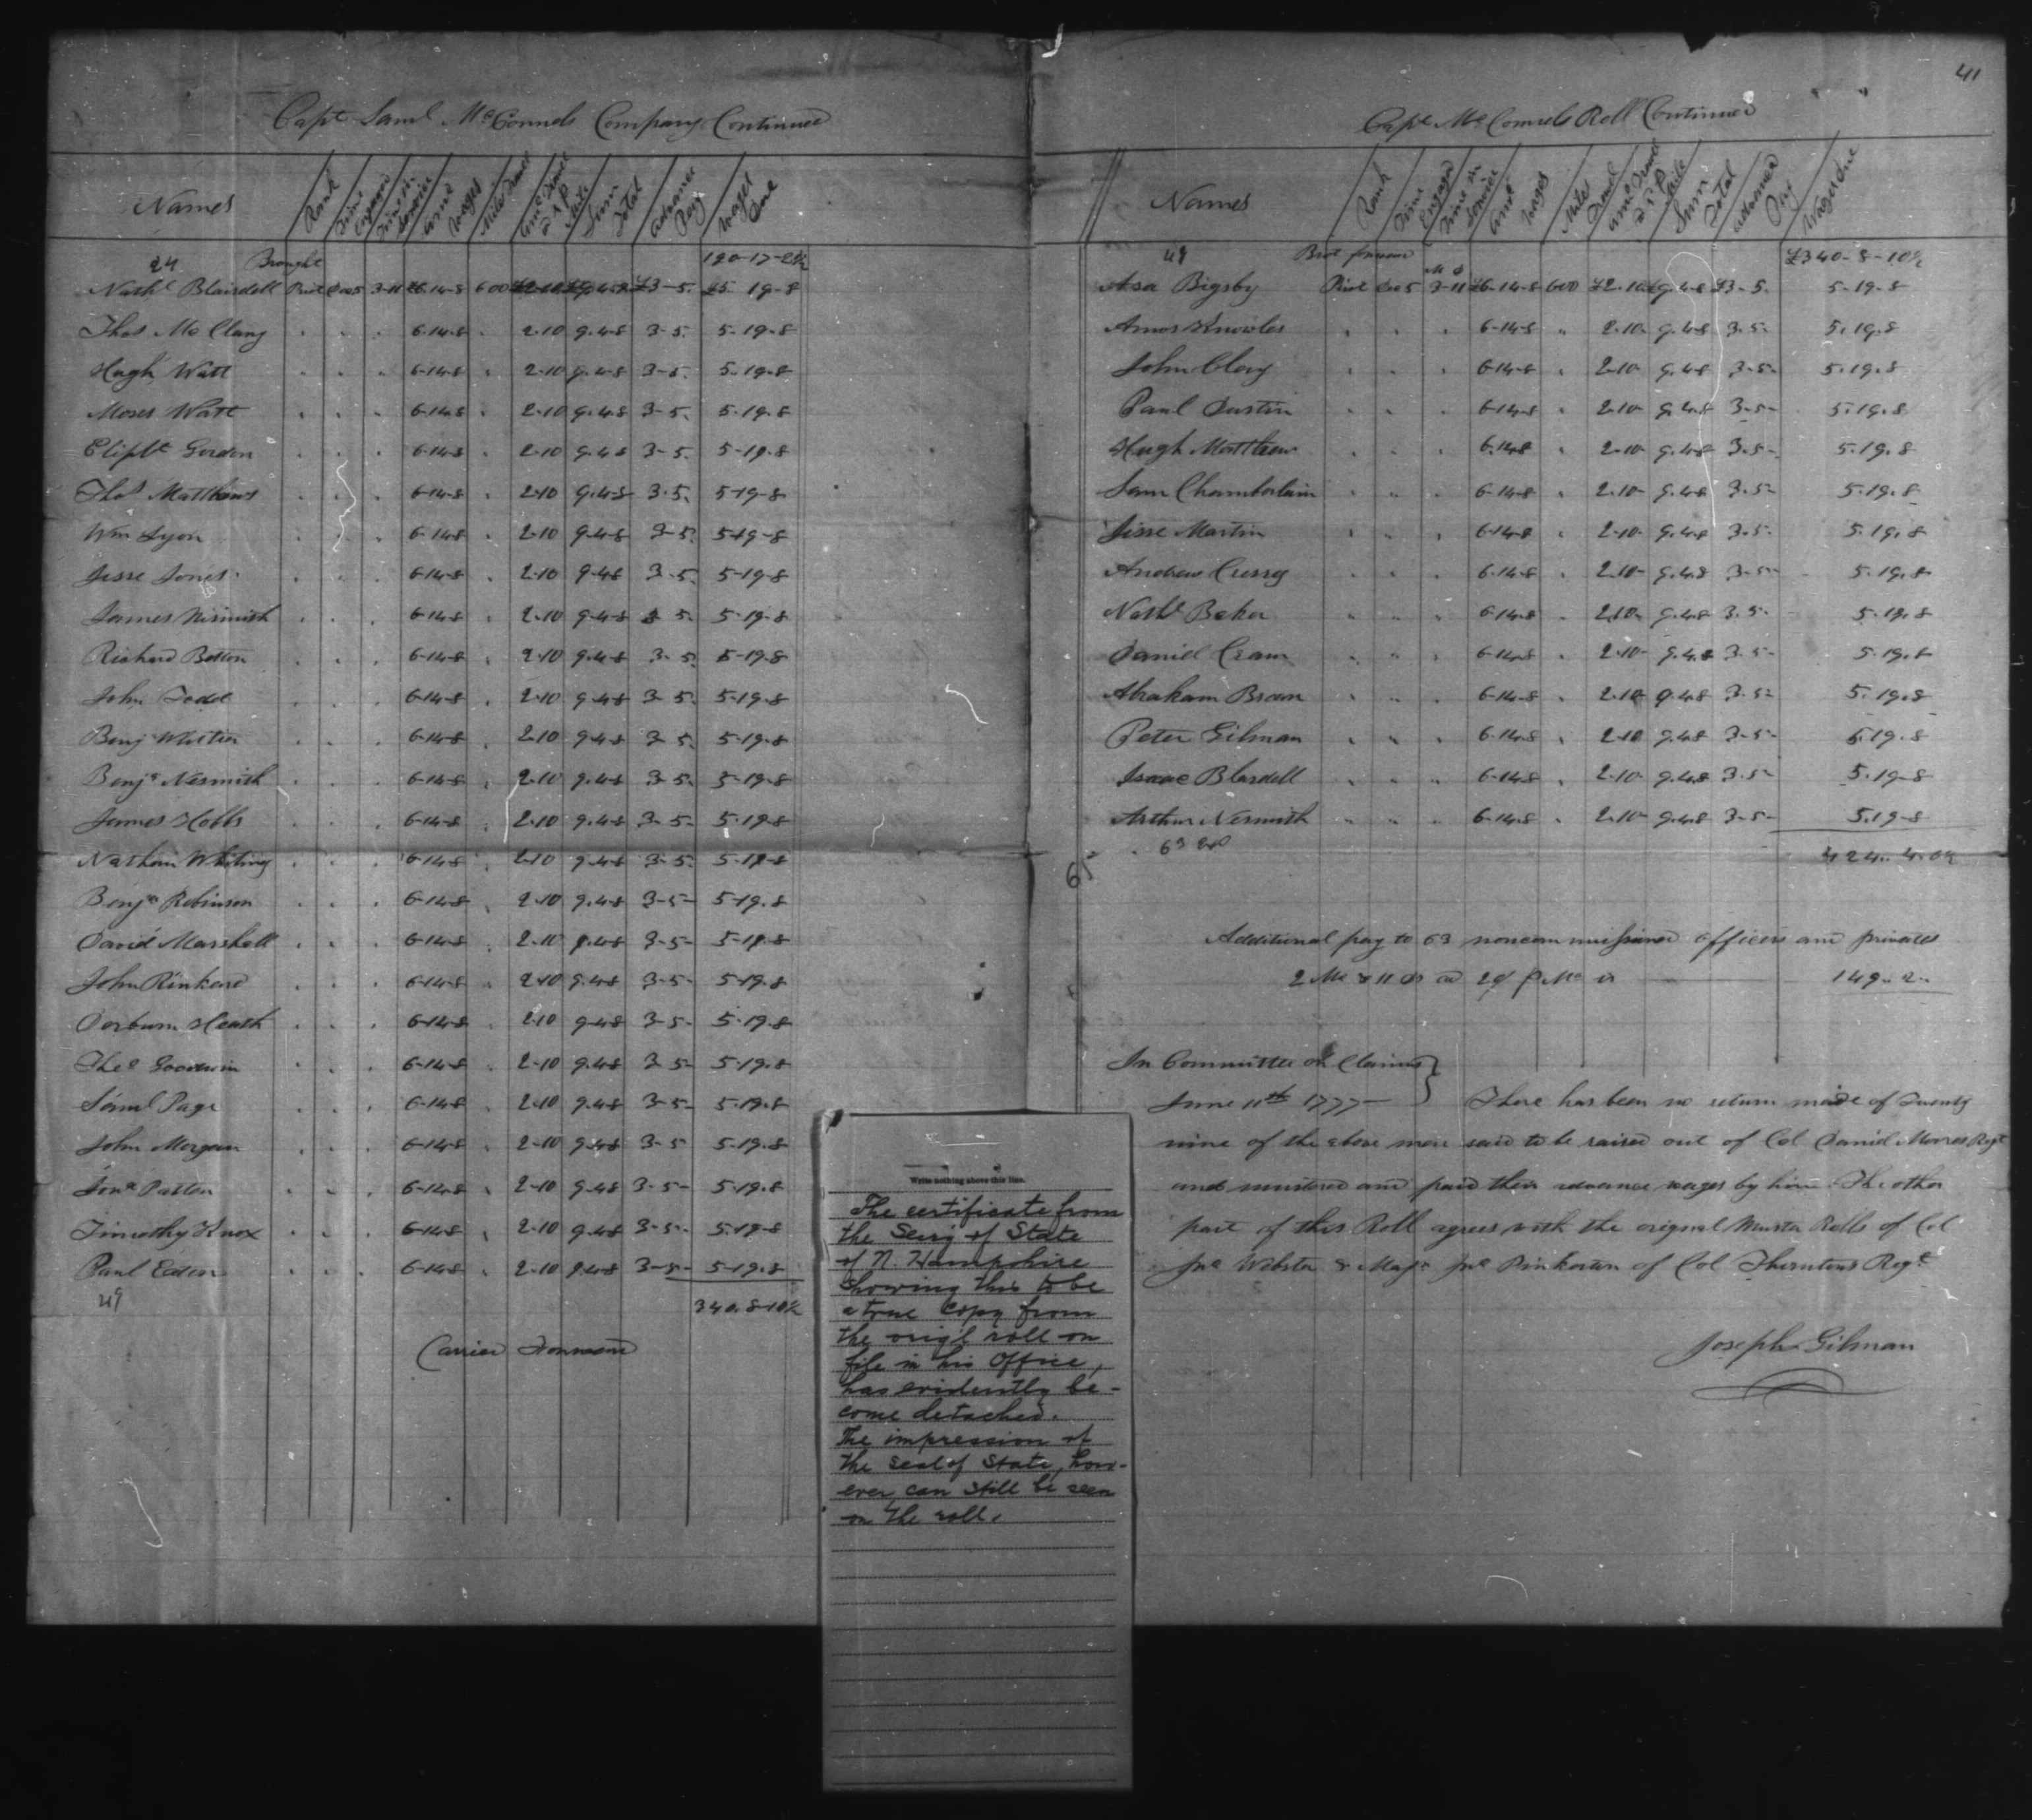 Capt Saml McConnels Company Continued
Names Rank Time Engaged Time in Service Amo Wages Miles Travel Amo Travel a 1 d p Mile Sum Total Advance Pay Wages Due
24 Brought 190-17-2½
Nathl Blaisdell Privt Decr 5 3-11 £6-14-8 600 £2-10 £9-4-8 £3-5. £5-19-8
Thos McClary . . . 6-14-8 . 2-10 9-4-8 3-5. 5-19-8
Hugh Watt . . . 6-14-8 . 2-10 9-4-8 3-5. 5-19-8
Moses Watt . . . 6-14-8 . 2-10 9-4-8 3-5. 5-19-8
Eliplt Gordon . . . 6-14-8 . 2-10 9-4-8 3-5. 5-19-8
Thos Matthews . . . 6-14-8 . 2-10 9-4-8 3-5. 5-19-8
Wm Lyon . . . 6-14-8 . 2-10 9-4-8 3-5. 5-19-8
Jesse Jones . . . 6-14-8 . 2-10 9-4-8 3-5. 5-19-8
James Nismith . . . 6-14-8 . 2-10 9-4-8 3-5. 5-19-8
Richard Betton . . . 6-14-8 . 2-10 9-4-8 3-5. 5-19-8
John Todd . . . 6-14-8 . 2-10 9-4-8 3-5. 5-19-8
Benj Whittier . . . 6-14-8 . 2-10 9-4-8 3-5. 5-19-8
Benja Nesmith . . . 6-14-8 . 2-10 9-4-8 3-5. 5-19-8
James Hobbs . . . 6-14-8 . 2-10 9-4-8 3-5. 5-19-8
Nathan Whiting . . . 6-14-8 . 2-10 9-4-8 3-5. 5-19-8
Benja Robinson . . . 6-14-8 . 2-10 9-4-8 3-5- 5-19-8
David Marshall . . . 6-14-8 . 2-10 9-4-8 3-5- 5-19-8
John Kinkead . . . 6-14-8 . 2-10 9-4-8 3-5- 5-19-8
Dorburn Heath . . . 6-14-8 . 2-10 9-4-8 3-5- 5-19-8
Theo Goodwin . . . 6-14-8 . 2-10 9-4-8 3-5- 5-19-8
Saml Page . . . 6-14-8 . 2-10 9-4-8 3-5- 5-19-8
John Morgan . . . 6-14-8 . 2-10 9-4-8 3-5 5-19-8
Jona Patten . . . 6-14-8 . 2-10 9-4-8 3-5- 5-19-8
Timothy Knox . . . 6-14-8 . 2-10 9-4-8 3-5- 5-19-8
Paul Eaton . . . 6-14-8 . 2-10 9-4-8 3-5- 5-19-8
49 340-8-10½
Carried Forward
Write nothing above this line.
The certificate from
the Secy of State
of N. Hampshire
showing this to be
a true copy from
the orig'l roll on
file in his office,
has evidently be-
come detached.
The impression of
the seal of State, how-
ever, can still be seen
on the roll.
41
Capt McConnels Roll Continued
Names Rank Time Engagd Time in Service Amo Wages Miles Travel Amo Travel a 1 d p Mile Sum Total Advanced Pay Wages Due
49 Brot forward £340-8-10½
M D
Asa Bigsby Privt Decr 5 3-11 £6-14-8 600 £2.10 £9-4-8 £3-5. 5-19-8
Amos Knowles . . . 6-14-8 . 2-10 9-4-8 3-5- 5-19-8
John Clay . . . 6-14-8 . 2-10 9-4-8 3-5- 5-19-8
Paul Dustin . . . 6-14-8 . 2-10 9-4-8 3-5- 5-19-8
Hugh Matthew . . . 6-14-8 . 2-10 9-4-8 3-5- 5-19-8
Sam Chamberlain . . . 6-14-8 . 2-10 9-4-8 3-5- 5-19-8
Jisse Martin . . . 6-14-8 . 2-10 9-4-8 3-5- 5-19-8
Andrew Curry . . . 6-14-8 . 2-10 9-4-8 3-5- 5-19-8
Nathl Baker . . . 6-14-8 . 2-10 9-4-8 3-5- 5-19-8
Daniel Cram . . . 6-14-8 . 2-10 9-4-8 3-5- 5-19-8
Abraham Brown . . . 6-14-8 . 2-10 9-4-8 3-5- 5-19-8
Peter Gilman . . . 6-14-8 . 2-10 9-4-8 3-5- 5-19-8
Isaac Blasdell . . . 6-14-8 . 2-10 9-4-8 3-5- 5-19-8
Arthur Nesmith . . . 6-14-8 . 2-10 9-4-8 3-5- 5-19-8
63
65
Additional pay to 63 noncommissioned officers and privates
2 Mo & 11 Ds a 20/ p Mo is 149-2-
In Committee on Claims
June 11th 1777- There has been no return made of Twenty
nine of the above men said to be raised out of Col Daniel Moores Regt
and mustered and paid their advance wages by him. The other
part of this Roll agrees with the original Muster Rolls of Col
Jno Webster & Majr Jno Pinkerton of Col Thorntons Regt
Joseph Gilman